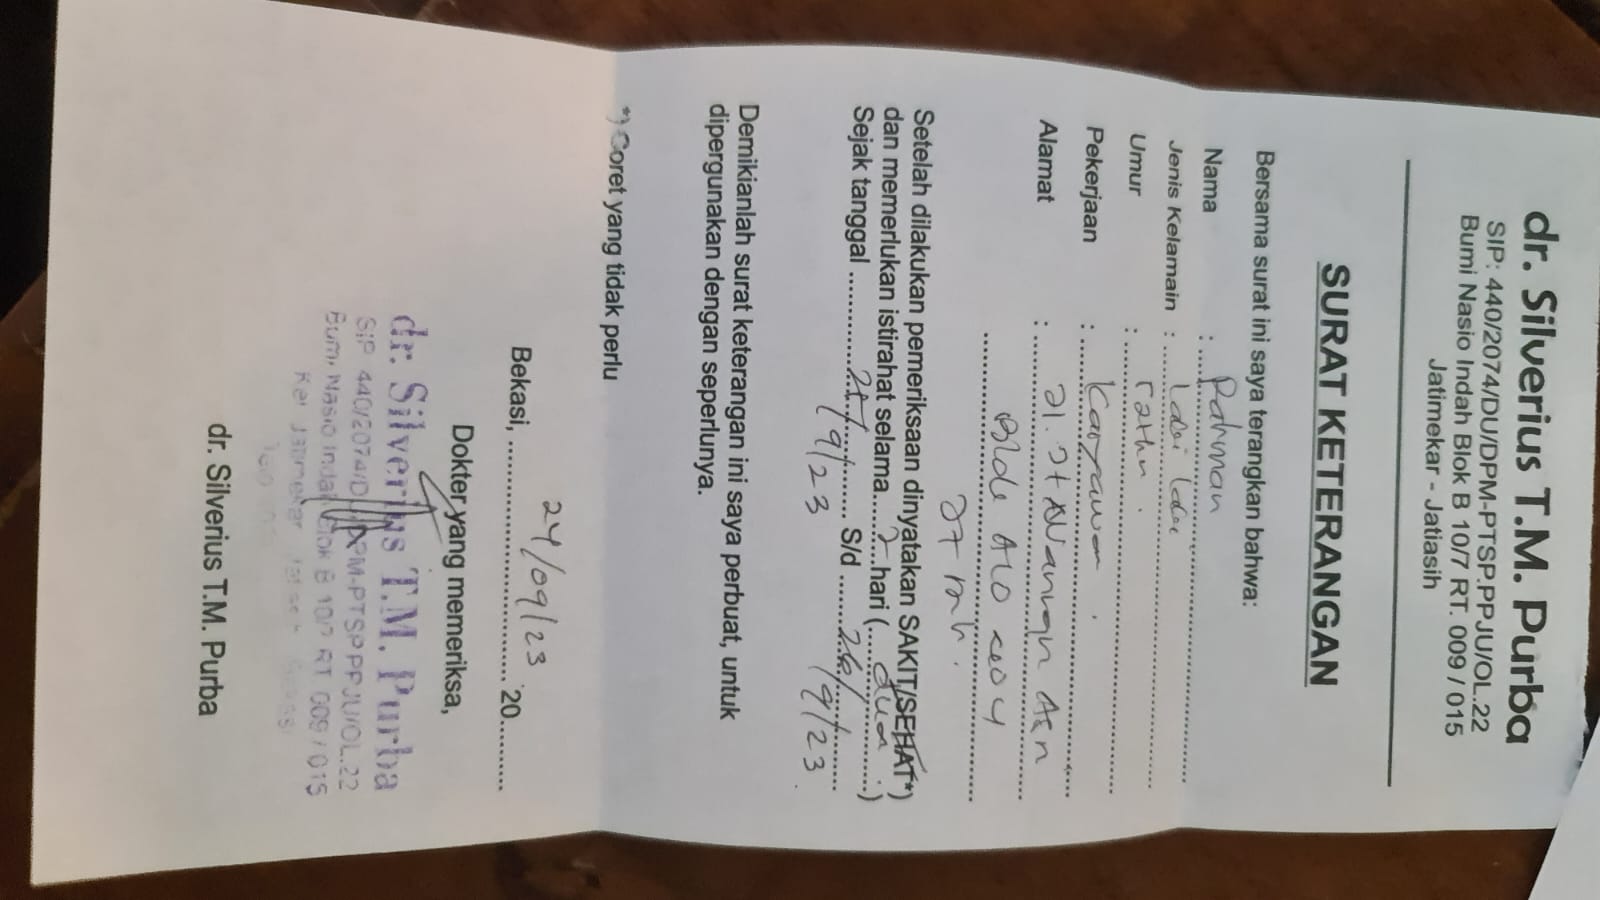 dr. Silverius T.M. Purba
SIP: 440/2074/DU/DPM-PTSP.PPJU/OL.22
Bumi Nasio Indah Blok B 10/7 RT. 009 / 015
Jatimekar - Jatiasih
SURAT KETERANGAN
Bersama surat ini saya terangkan bahwa:
Nama : Rahman
Jenis Kelamain : Laki laki
Umur :
Pekerjaan : Karyawan
Alamat : Jl.
Setelah dilakukan pemeriksaan dinyatakan SAKIT/SEHAT*)
dan memerlukan istirahat selama 2 hari (dua)
Sejak tanggal /9/23 S/d 26/9/23
Demikianlah surat keterangan ini saya perbuat, untuk
dipergunakan dengan seperlunya.
*) Coret yang tidak perlu
Bekasi, 24/09/23 20
Dokter yang memeriksa,
dr. Silverius T.M. Purba
SIP 440/2074/DU/DPM-PTSP.PPJU/OL.22
Bumi Nasio Indah Blok B 10/7 RT 009 / 015
Kel Jatimekar
dr. Silverius T.M. Purba